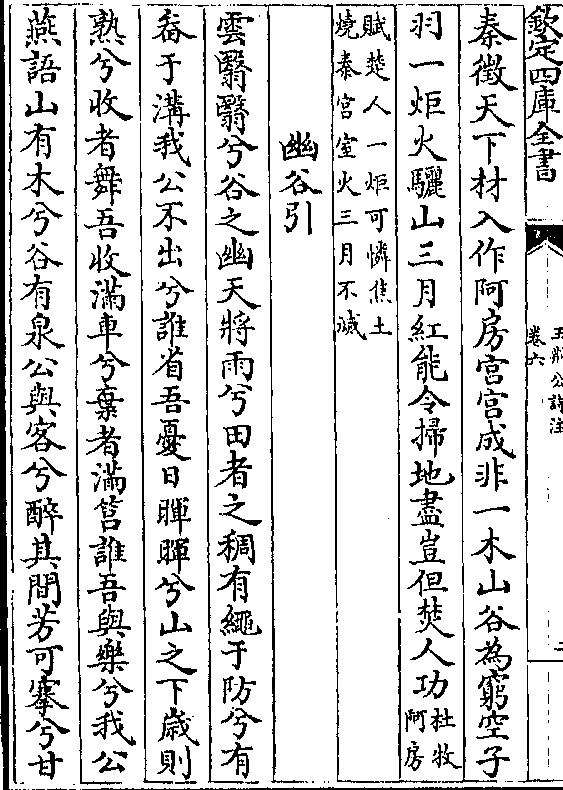 欽定四庫全書
王荊公詩注
卷六
秦徵天下材入作阿房宮宮成非一木山谷為窮空子
羽一炬火驪山三月紅能令掃地盡豈但焚人功
杜牧
阿房
賦楚人一炬可憐焦土
燒秦宮室火三月不滅
幽谷引
雲翳翳兮谷之幽天將雨兮田者之稠有繩于防兮有
畚于溝我公不出兮誰省吾憂日暉暉兮山之下歲則
熟兮收者舞吾收滿車兮棄者滿筥誰吾與樂兮我公
燕語山有木兮谷有泉公與客兮醉其間芳可搴兮甘